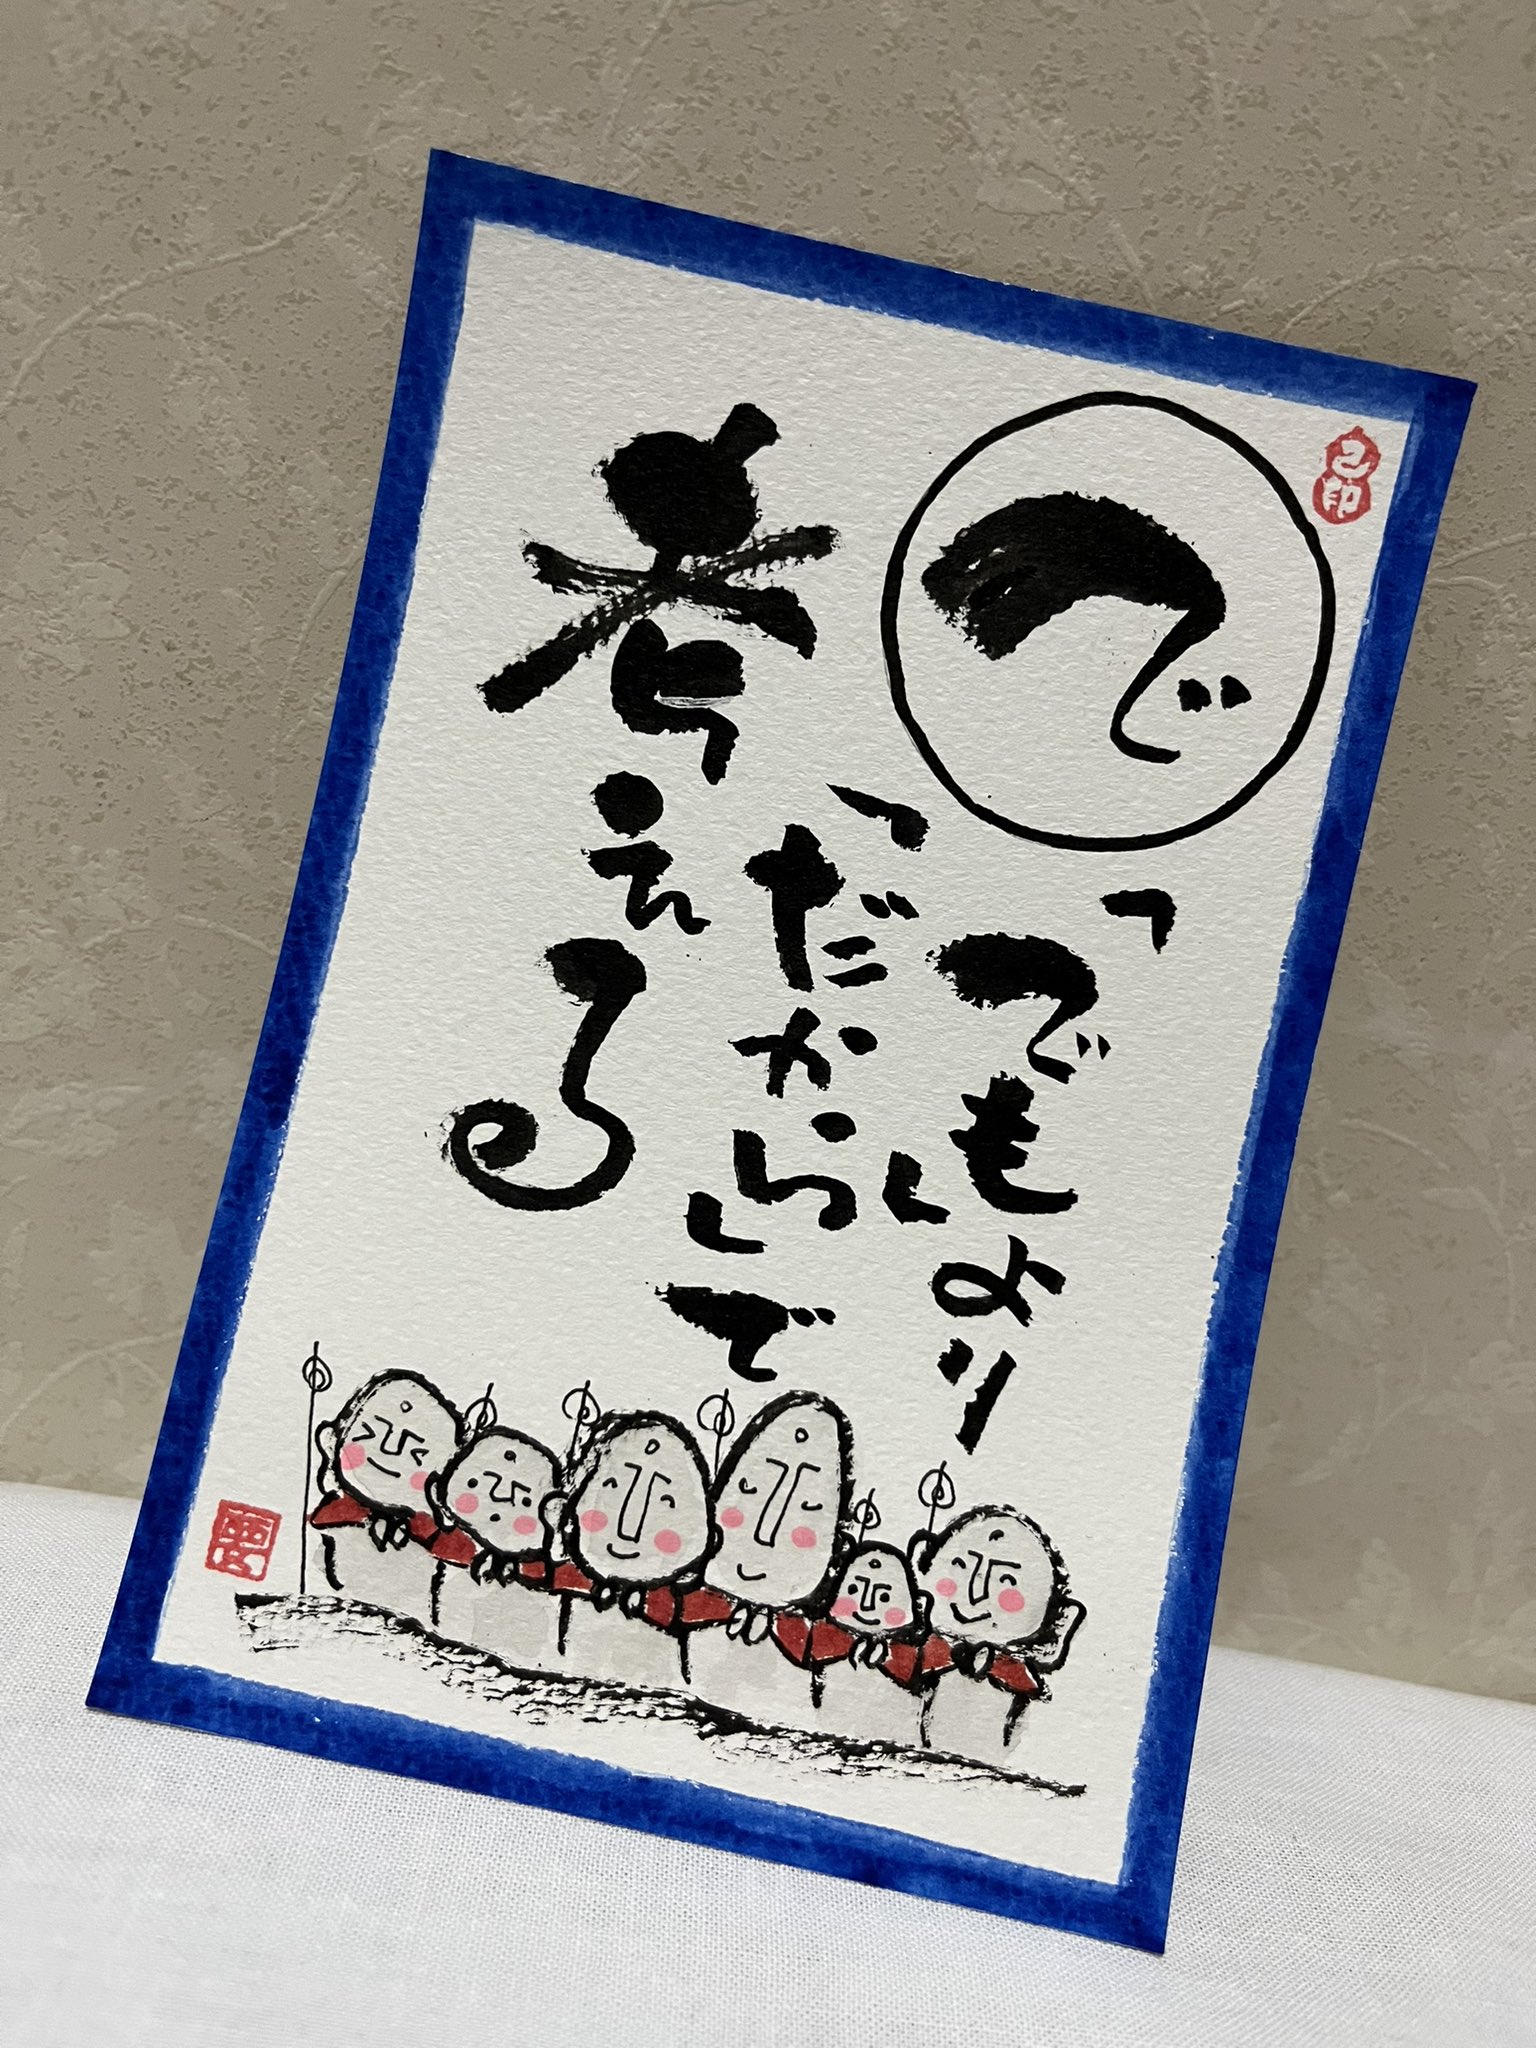 で
「でも」より
「だから」で
考える
己印